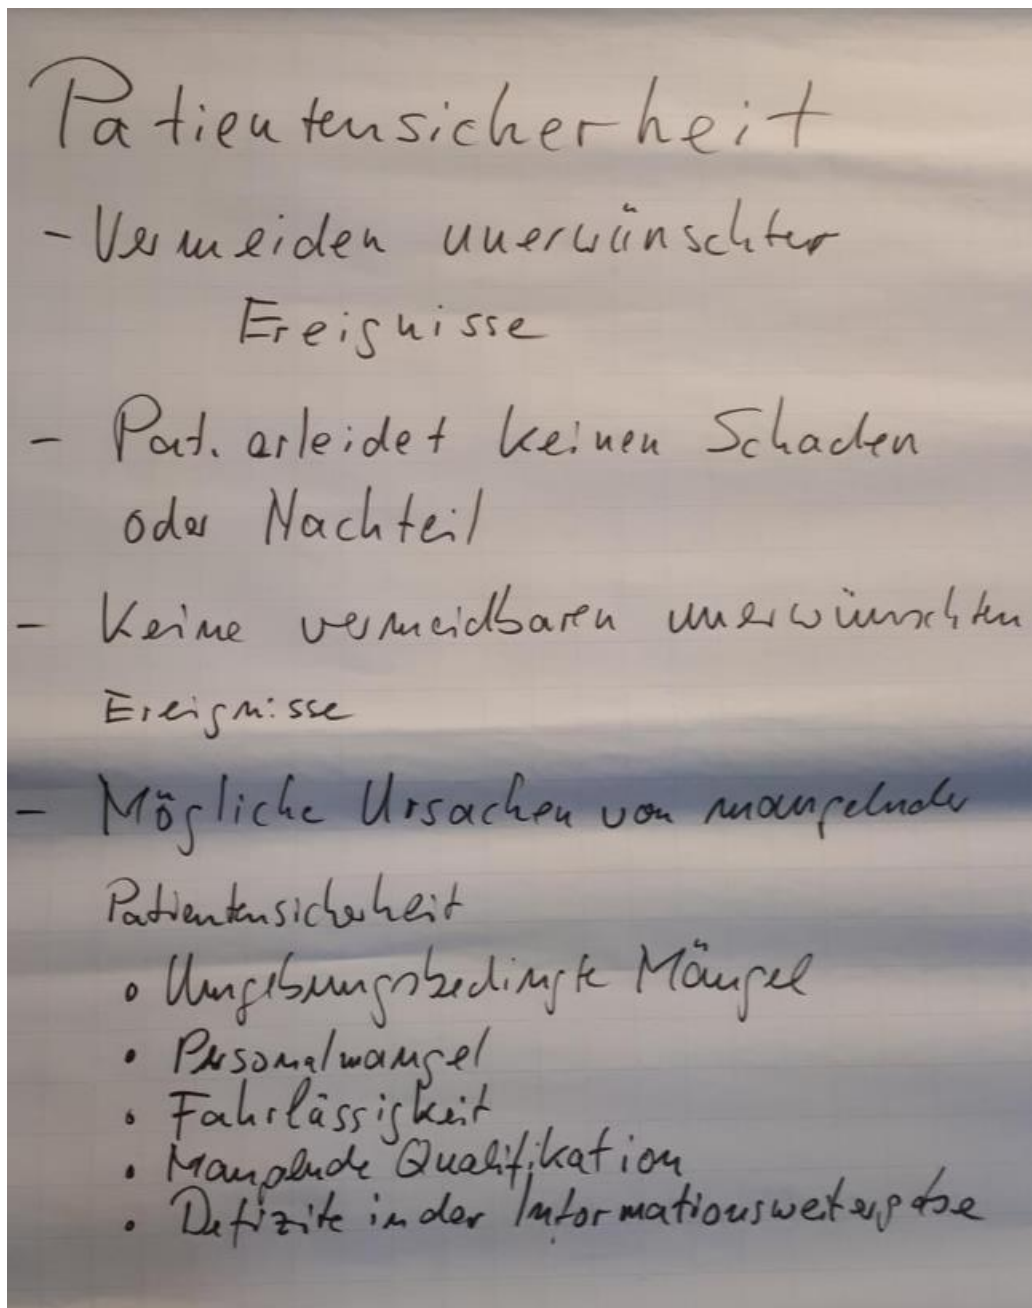 Patientensicherheit
- Vermeiden unerwünschter
Ereignisse
- Pat. erleidet keinen Schaden
oder Nachteil
- Keine vermeidbaren unerwünschten
Ereignisse
- Mögliche Ursachen von mangelnder
Patientensicherheit
• Umgebungsbedingte Mängel
• Personalmangel
• Fahrlässigkeit
• Mangelnde Qualifikation
• Defizite in der Informationsweitergabe